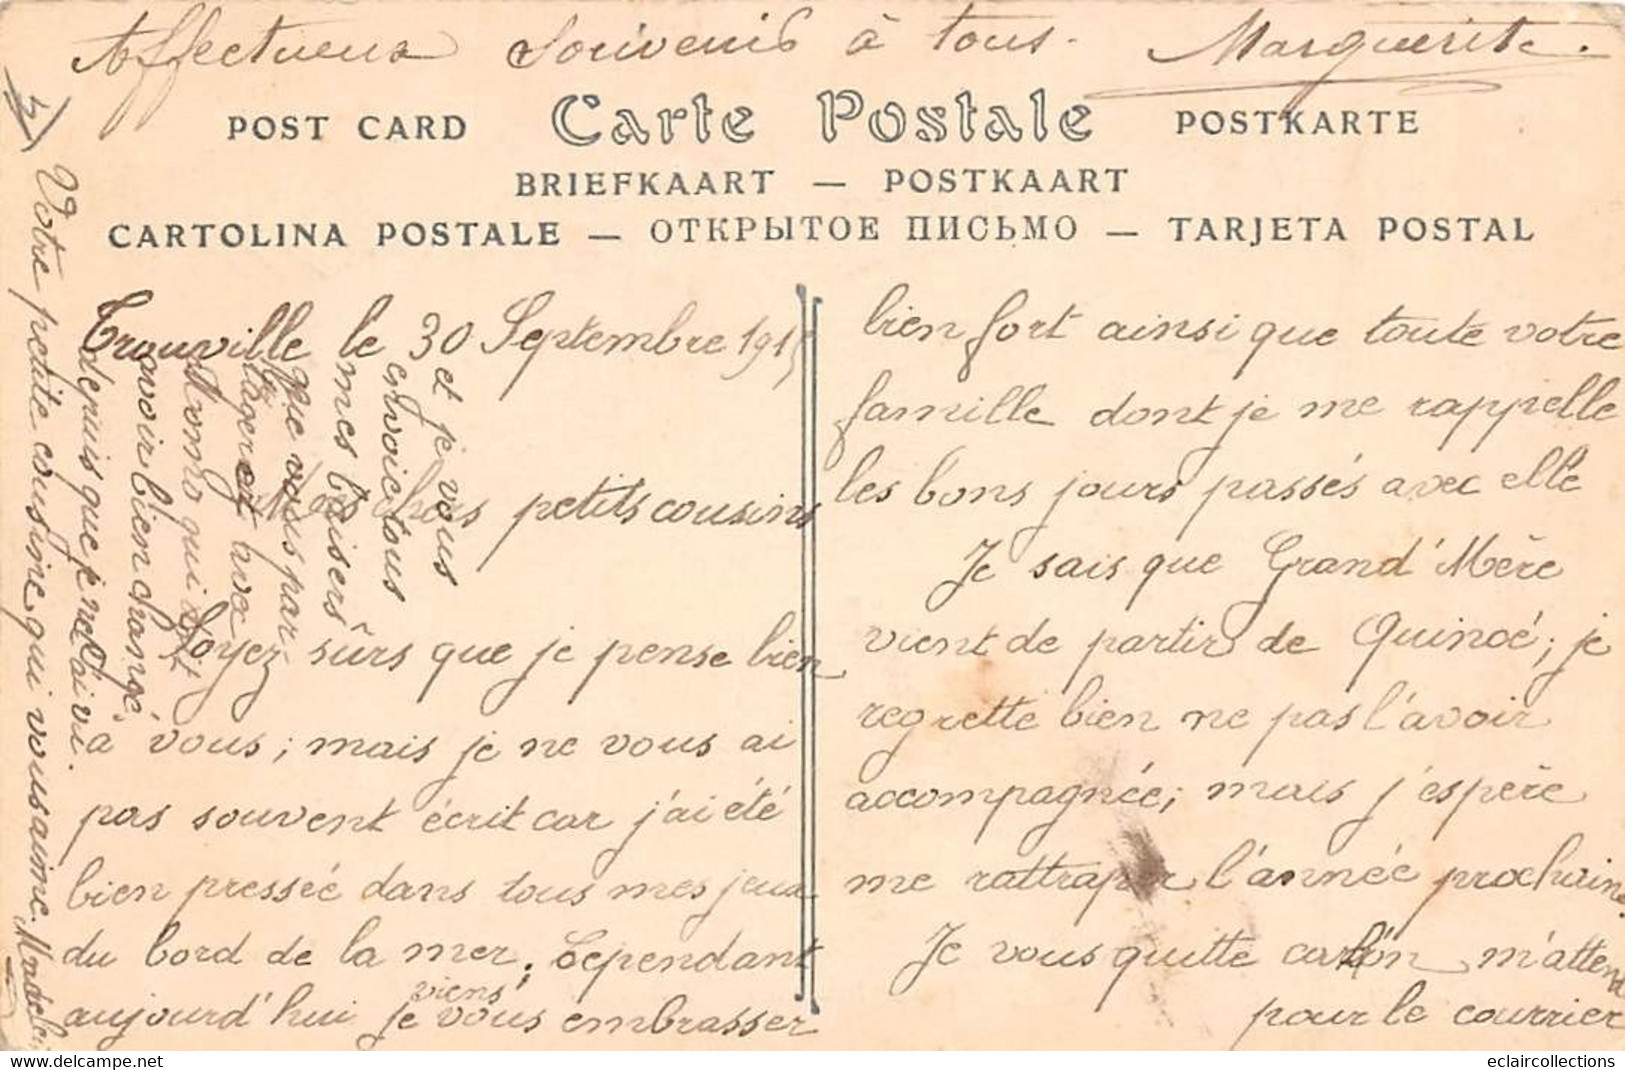 Affectueux Souvenirs à tous. Marguerite.
POST CARD Carte Postale POSTKARTE
BRIEFKAART — POSTKAART
CARTOLINA POSTALE — ОТКРЫТОЕ ПИСЬМО — TARJETA POSTAL
Trouville le 30 Septembre 1915
Mes chers petits cousins
Soyez sûrs que je pense bien
à vous; mais je ne vous ai
pas souvent écrit car j'ai été
bien pressée dans tous mes jeux
du bord de la mer. Cependant
aujourd'hui je viens vous embrasser
bien fort ainsi que toute votre
famille dont je me rappelle
les bons jours passés avec elle
Je sais que Grand'Mère
vient de partir de Quincé; je
regrette bien ne pas l'avoir
accompagnée; mais j'espère
me rattraper l'année prochaine.
Je vous quitte car l'on m'attend
pour le courrier
et je vous
envoie tous
mes baisers
que vous par-
tagerez avec
qui doit
avoir bien changé,
depuis que je ne l'ai vu.
Votre petite cousine qui vous aime.
eclaircollections